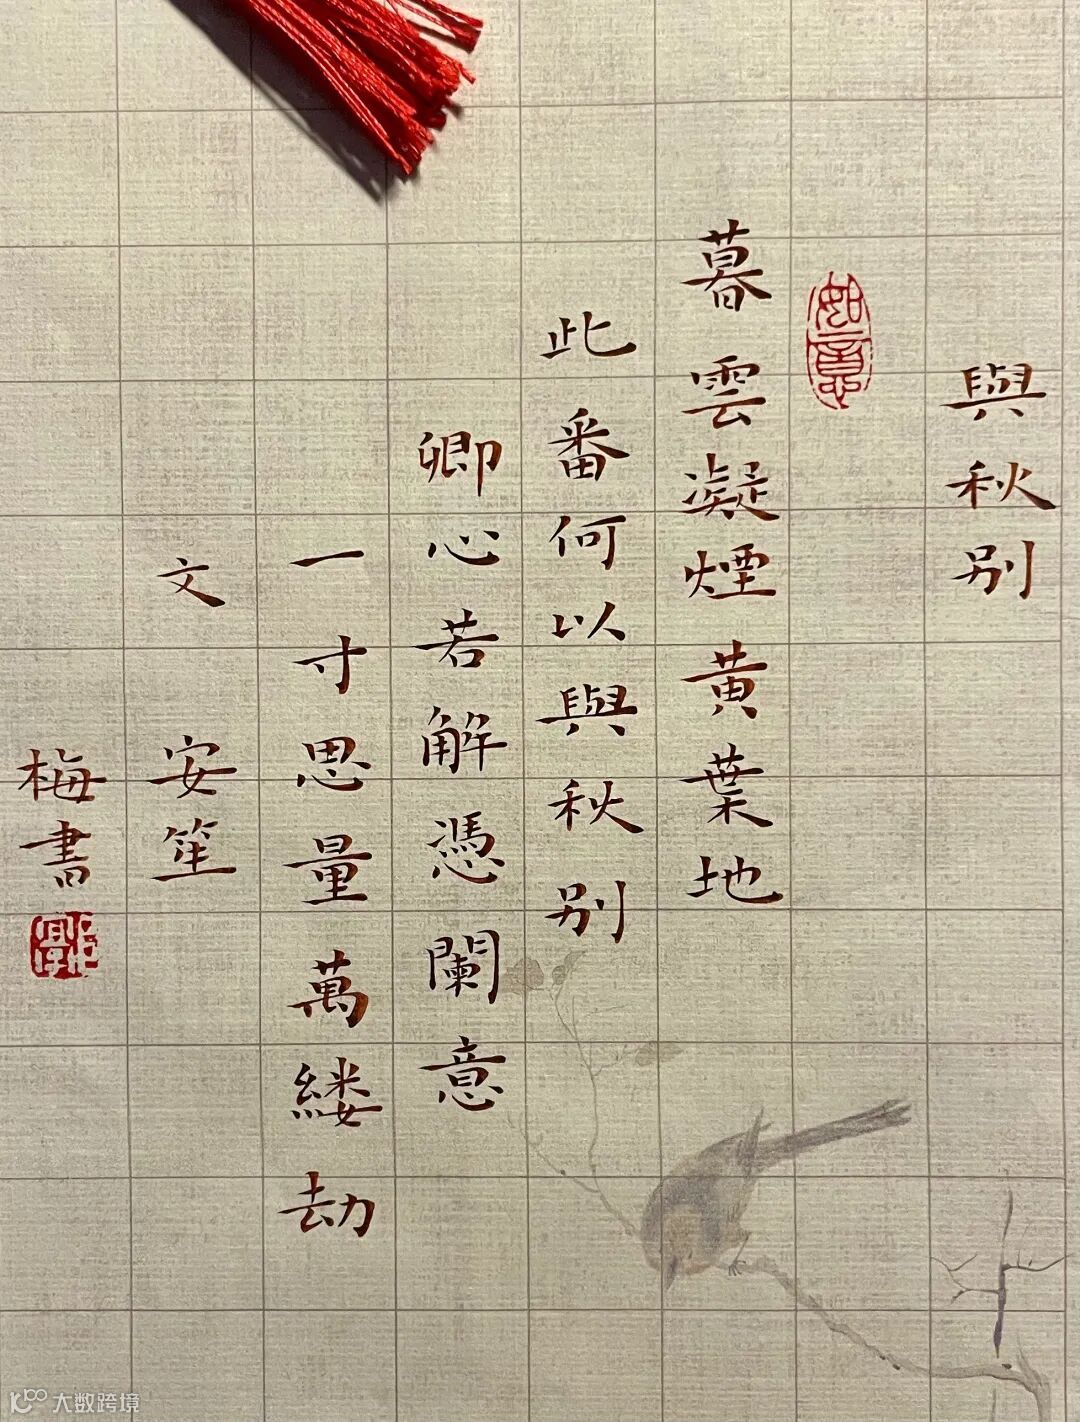 與秋别
如意
暮雲凝煙黄葉地
此番何以與秋别
卿心若解憑闌意
一寸思量萬縷劫
文 安笙
梅書
大数跨境